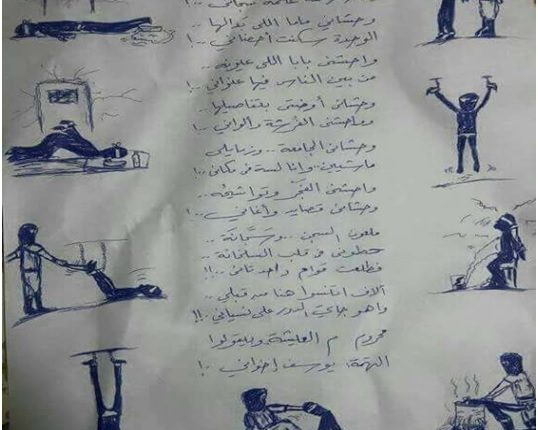 وحشاني ماما اللي
الوحدة سكنت أحضاني ..!
واحشني بابا اللي عيونه ..
من بين الناس فيها عنواني ..!
وحشاني أوضتي بتفاصيلها ..
وواحشني الفرشة وألواني ..!
وحشاني الجامعة .. وزمايلي
ماشيين .. وانا لسة ف مكاني ..!
واحشني الفجر وتواشيحه ..
وحشاني قصايد وأغاني ..!
ملعون السجن .. وسجانة ..
حطوني ف قلب السلخانة ..
فطلعت قوام واحد تاني ..!!
آلاف اتنسوا هنا من قبلي ..
واهو جاي الدور على نسياني ..!!
محروم م العيشة وبيقولوا
التهمة: يوسف إخواني ..!